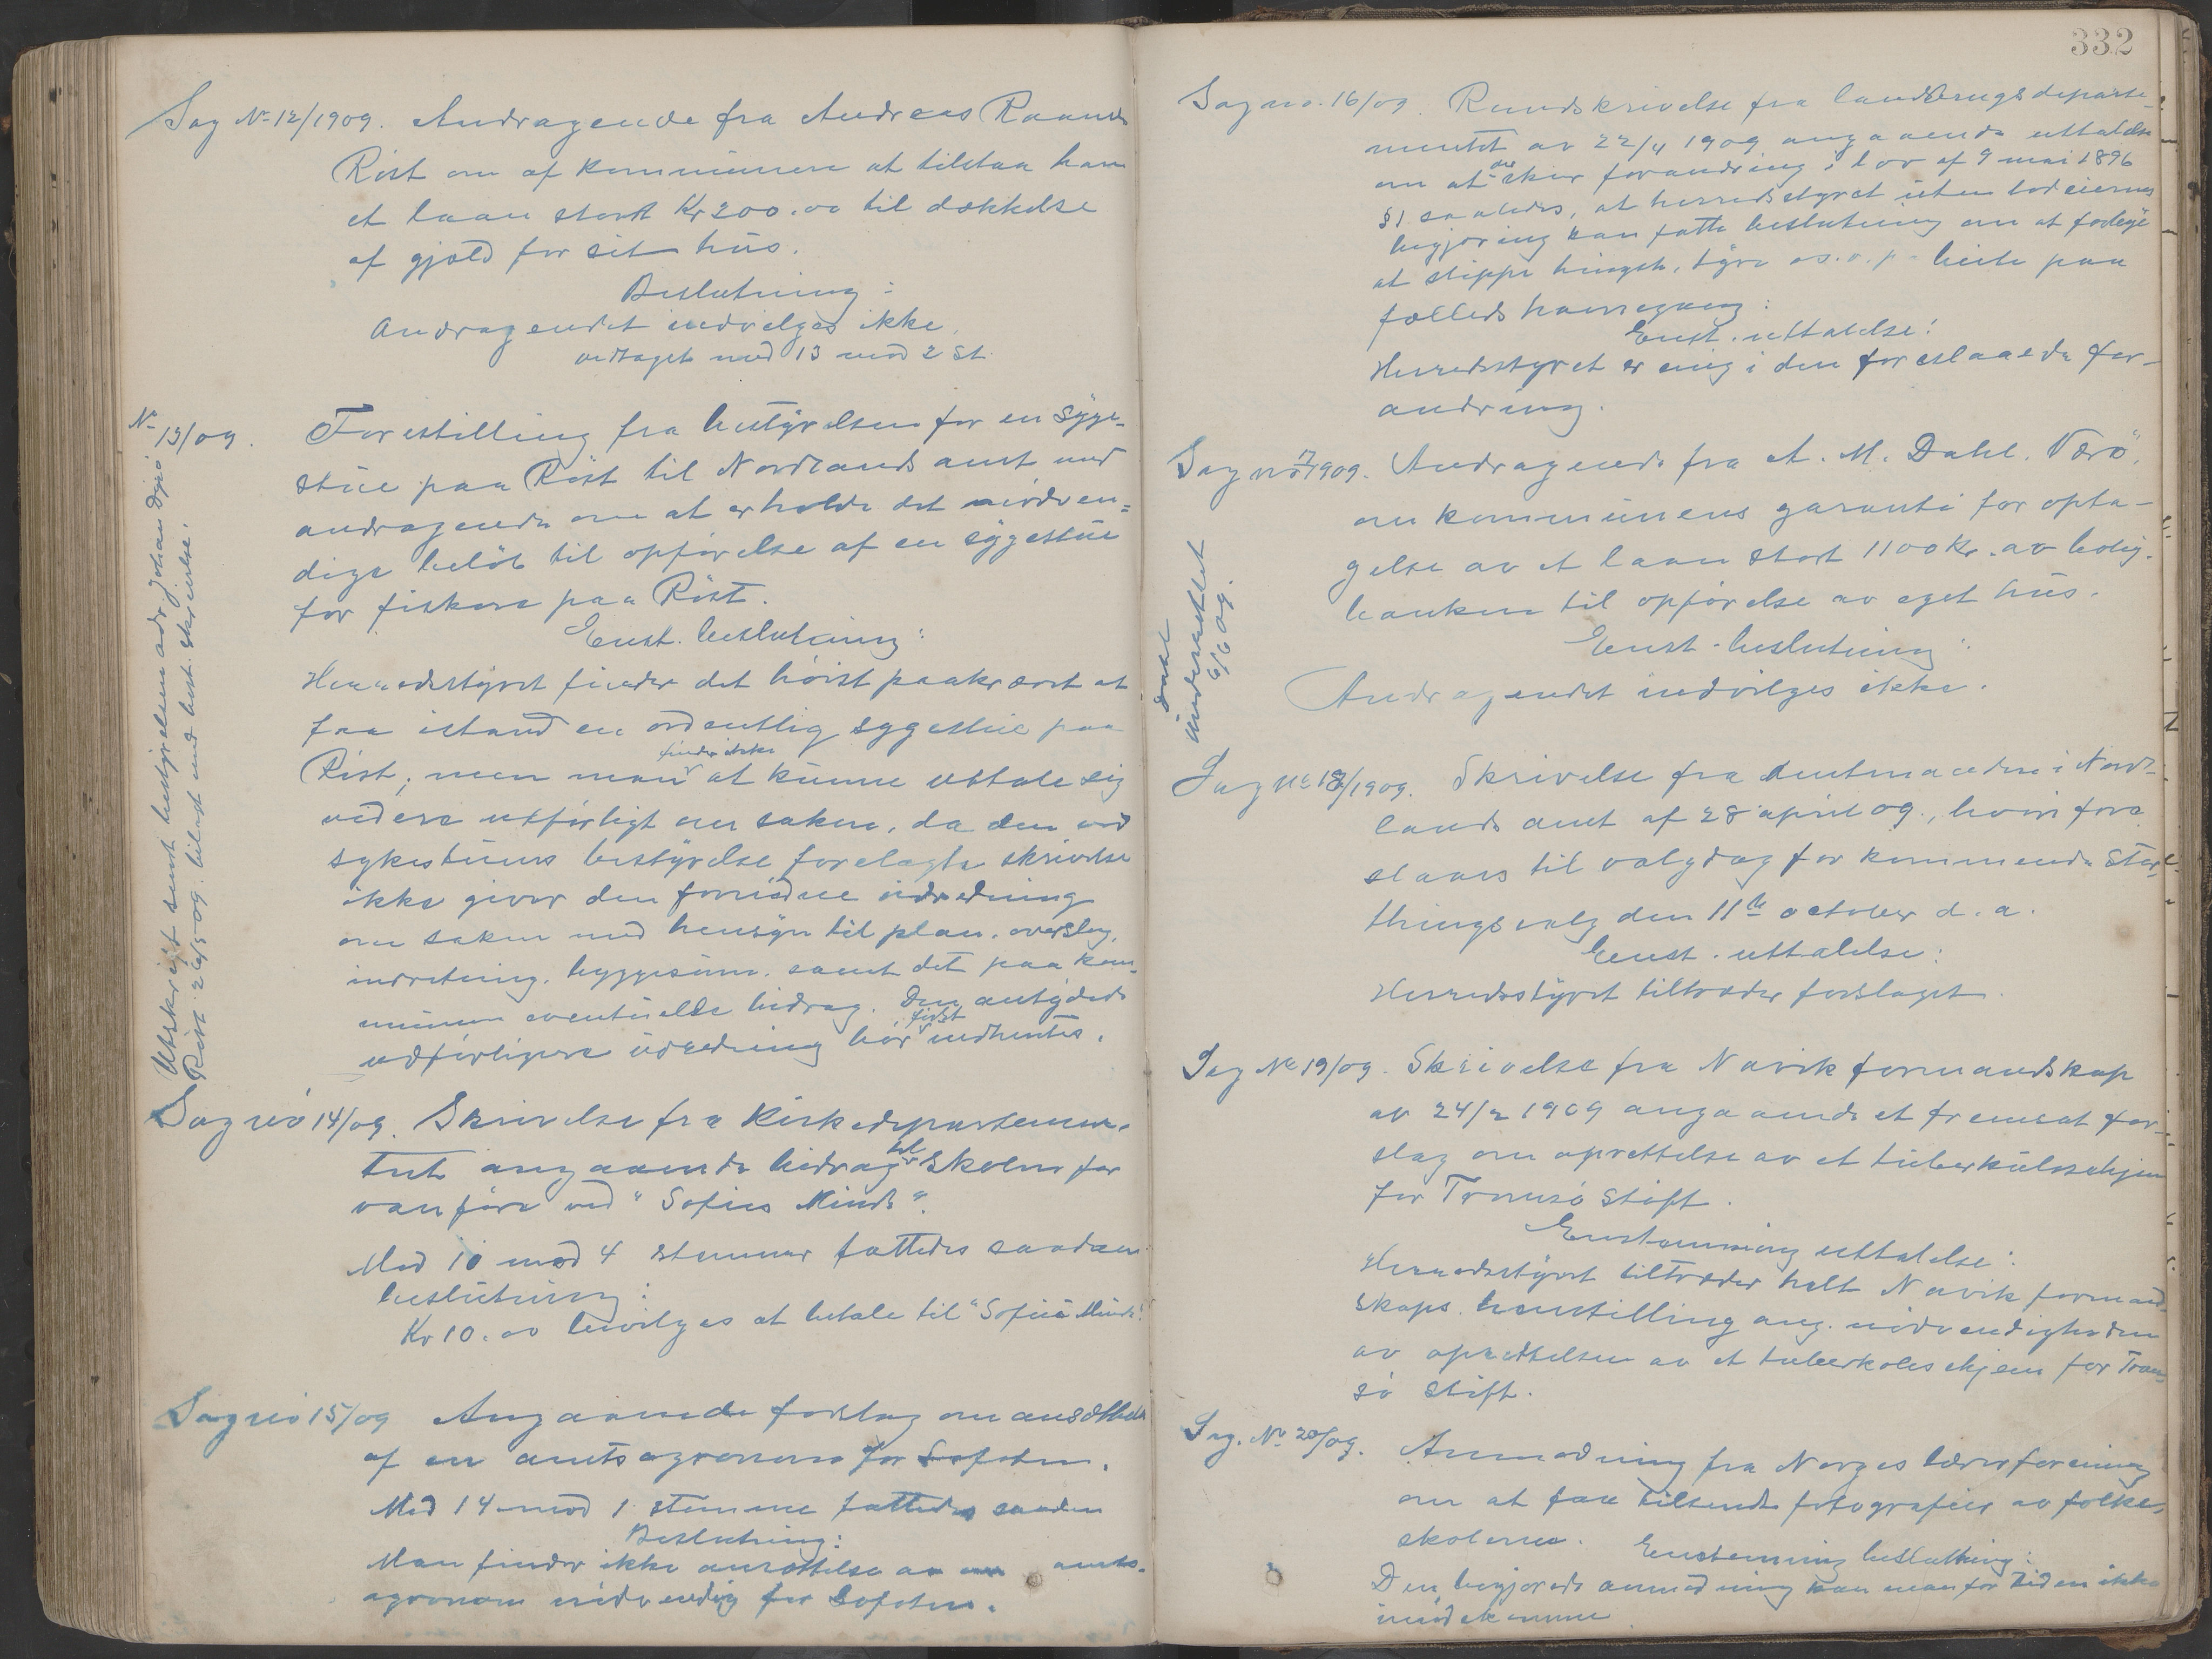 Sag No 12/1909. Andragende fra Andreas Raanes
Röst om af kommunen at tilstaa ham
et laan stort Kr 200.00 til dækkelse
af gjæld for sit hus.
Beslutning:
Andragendet indvilges ikke.
vedtaget med 13 mod 2 St.
No 13/09. Forestilling fra bestyrelsen for en syge-
stue paa Röst til Nordlands amt med
andragende om at erholde det nödven=
dige belöb til opförelse af en sygestue
for fiskere paa Röst.
Enst. beslutning:
Herredsstyret finder det höist paakrævet at
faa istand en ordentlig sygestue paa
Röst; men man finder ikke at kunne uttale sig
videre utförligt om saken, da den ved
sykestuens bestyrelse forelagte skrivelse
ikke giver den fornödne udredning
om saken med hensyn til plan, overslag,
indretning, byggesum, samt det paa kom-
munen eventuelle bidrag. Den antydede
udförligere udredning bör först indhentes.
Utskrift sendt bestyrelsen adr. Johan
Röst 26/5 09 bilagt med best. skrivelse.
Sag no 14/09. Skrivelse fra Kirkedepartemen-
tet angaaende bidrag til skolen for
vanföre ved "Sofies Minde".
Med 10 mod 4 stemmer fattedes saadan
beslutning:
Kr 10.00 bevilges at betale til "Sofies Minde".
Sag no 15/09 Angaaende forslag om ansættelse
af en amtsagronom for Lofoten.
Med 14 mod 1 stemme fattedes saaden
Beslutning:
Man finder ikke ansættelse av en amts-
agronom nödvendig for Lofoten.
332
Sag no. 16/09. Rundskrivelse fra landbrugsdeparte-
mentet av 22/4 1909 angaaende uttalelse
om at der sker forandring i lov af 9 mai 1896
§1 saaledes, at herredsstyret uten lodeiernes
begjæring kan fatte beslutning om at forbyde
at slippe hingste, tyre o.s.v. paa beite paa
fælleds havnegang:
Enst. uttalelse:
Herredsstyret er enig i den foreslaaede for-
andring.
Sag no 17/1909. Andragende fra A. M. Dahl, Værö,
om kommunens garanti for opta-
gelse av et laan stort 1100 Kr. av bolig-
banken til opförelse av eget hus.
Enst. beslutning:
Andragendet indvilges ikke.
Dahl
underrettet
6/6 09.
Sag no 18/1909. Skrivelse fra Amtmanden i Nord-
lands amt af 28 april 09, hvori fore-
slaaes til valgdag for kommende Stor-
thingsvalg den 11te october d.a.
Enst. uttalelse:
Herredsstyret tiltræder forslaget.
Sag No 19/09. Skrivelse fra Narvik formandskap
av 24/2 1909 angaaende et fremsat for-
slag om oprettelse av et tuberkulosehjem
for Tromsö Stift.
Enstemmig uttalelse:
Herredsstyret tiltræder helt Narvik formand-
skaps henstilling ang. nödvendigheden
av oprettelsen av et tuberkolosehjem for Trom-
sö Stift.
Sag. No 20/09. Anmodning fra Norges lærerforening
om at faa tilsendt fotografier av folke-
skolerne.
Enstemmig beslutning:
Den begjærede anmodning kan man for tiden ikke
imödekomme